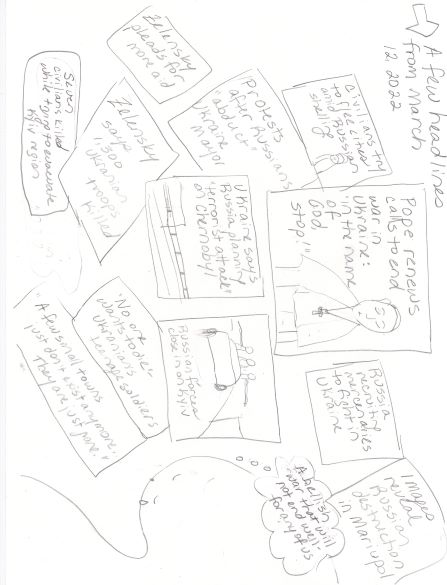 A few headlines
from March
12, 2022
Zelensky
pleads for
more aid
Seven
civilians killed
while trying to evacuate
Kyiv region
Zelensky
says
1,300
Ukrainian
troops
killed
Protests
after Russians
"abduct"
Ukraine
Mayor
Civilians try
to flee cities
amid Russian
shelling
Ukraine says
Russia planning
"terrorist attack"
on Chernobyl
Pope renews
calls to end
war in
Ukraine:
"in the name
of
God
stop!"
"No one
wants to die"
Ukrainian
teenage soldiers
"A few small towns
just don't exist anymore.
They are just gone."
Russian forces
close in on Kyiv
Russia
recruiting
mercenaries
to fight in
Ukraine
A hellish
war that will
not end well
for any of us
Images
reveal
Russian
destruction
in Mariupol